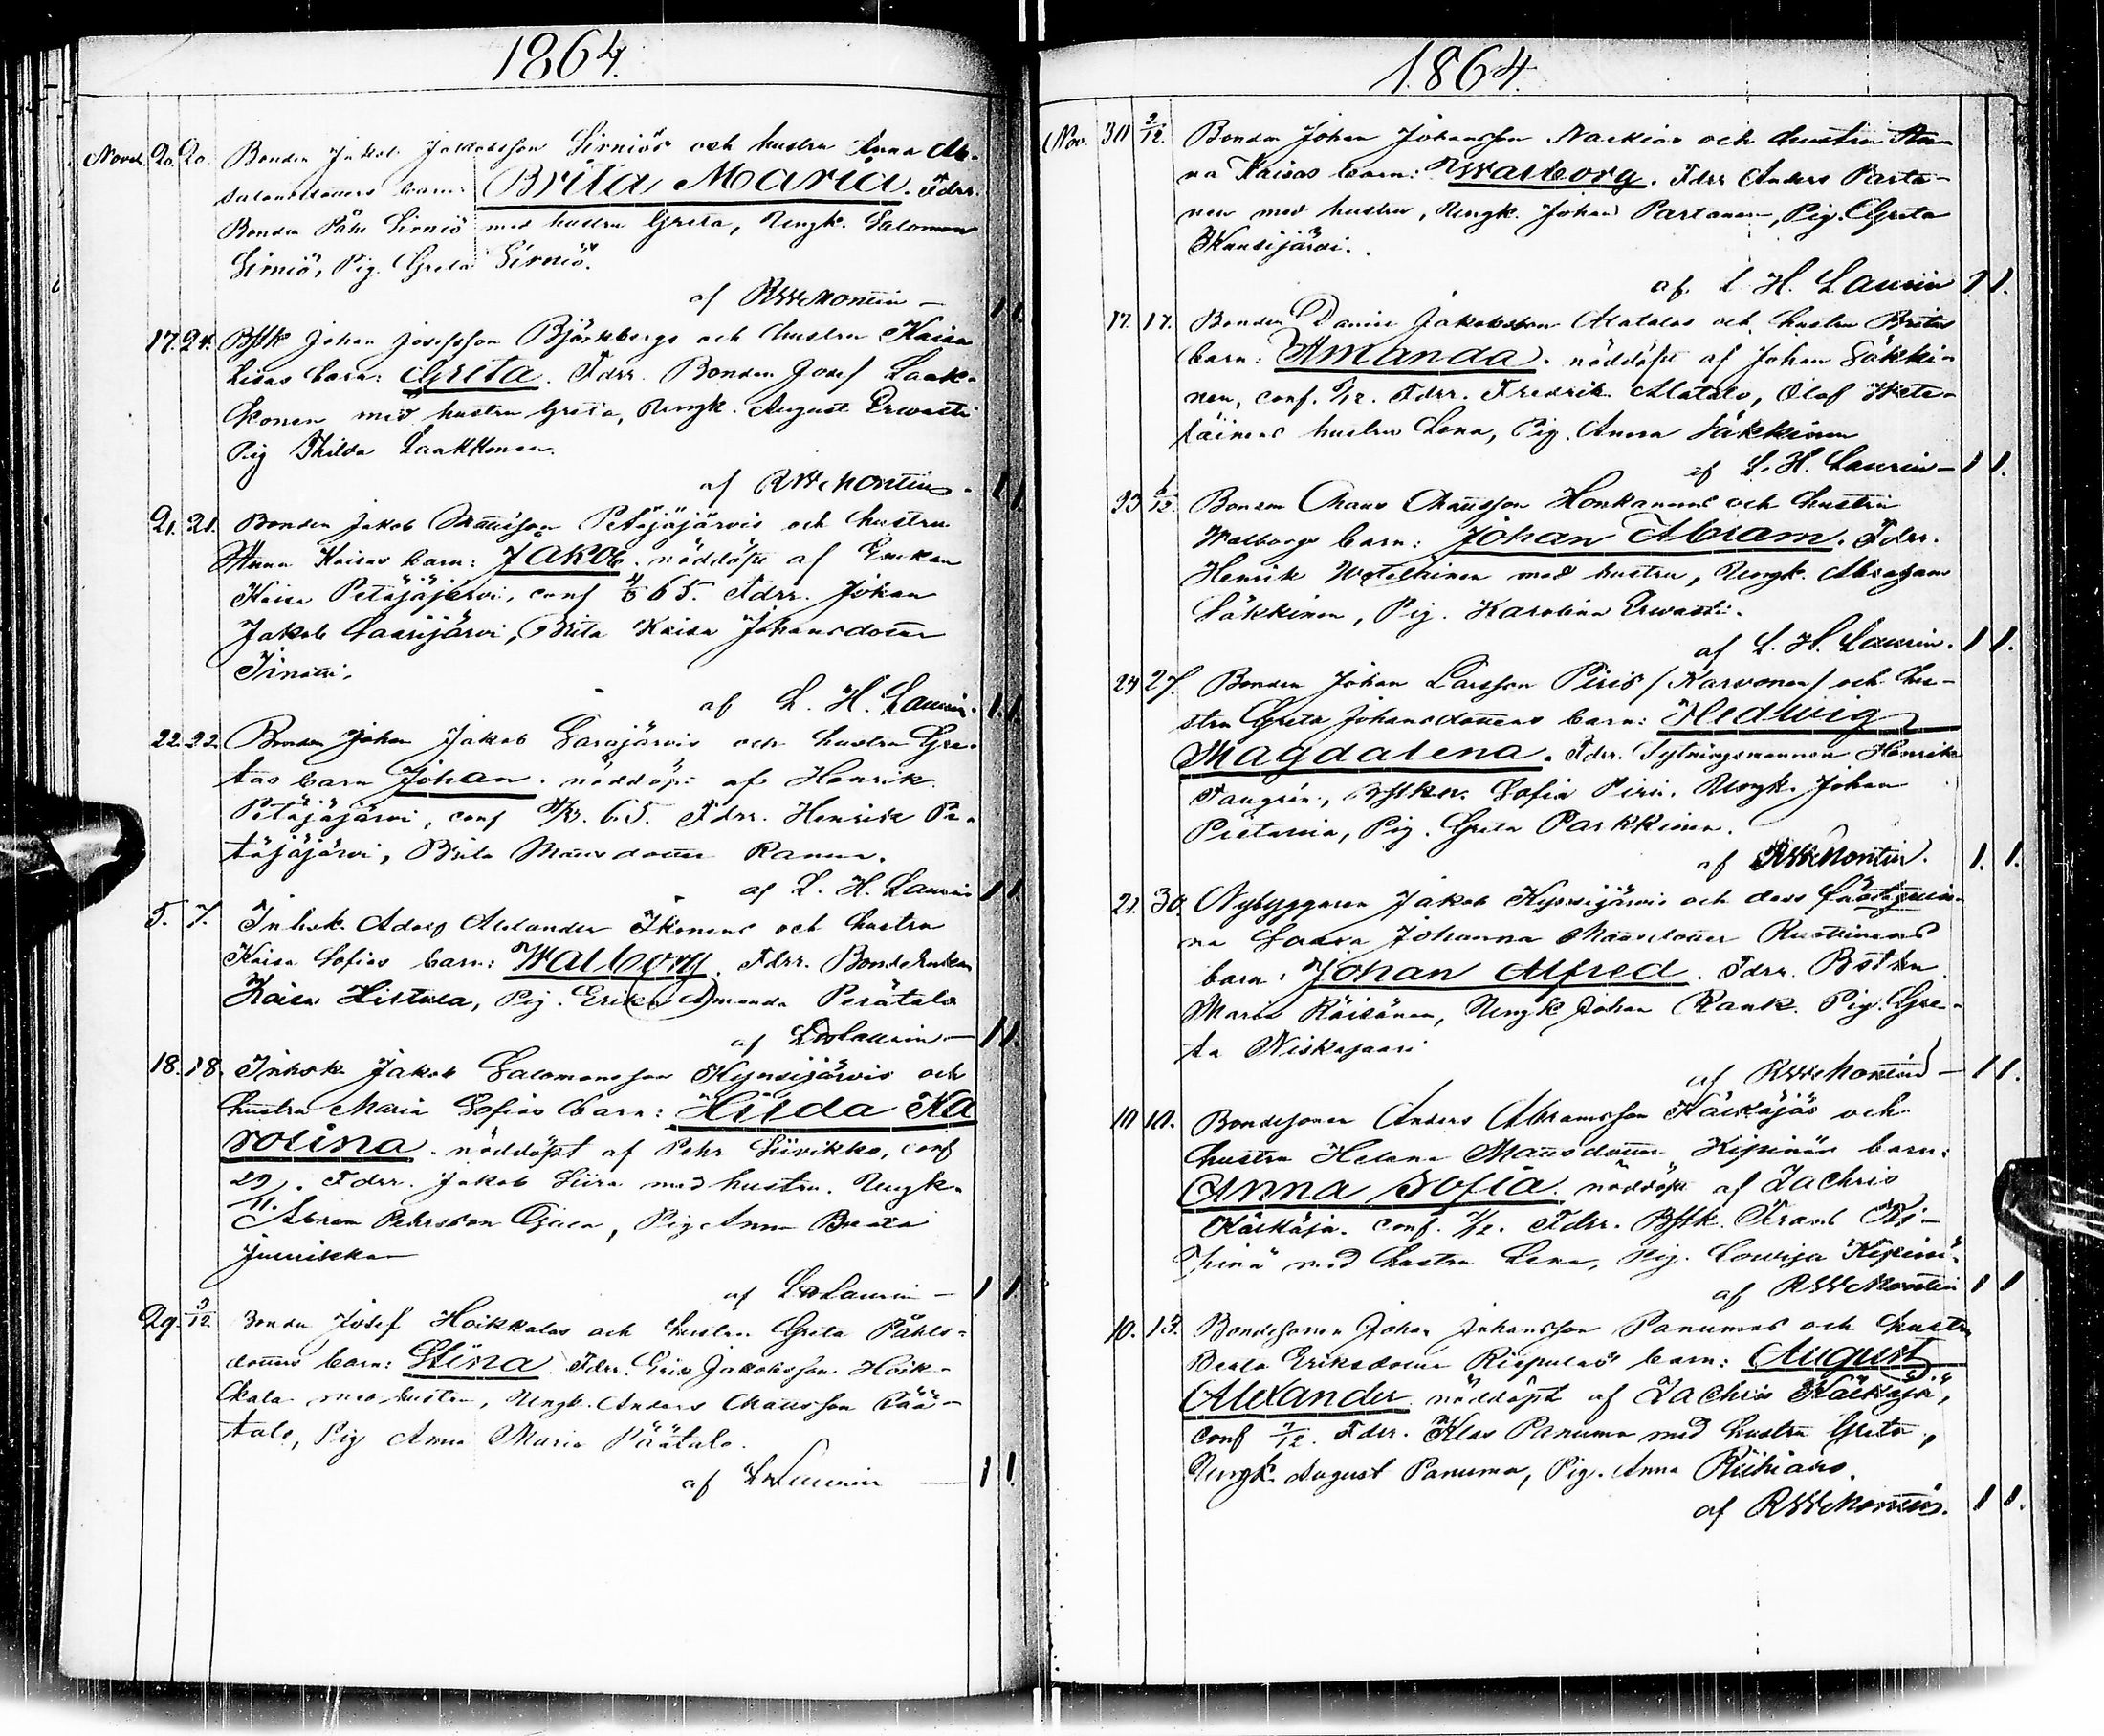 1864.
Novemb. 20. 20. Bonden Jakob Jakobsson Sirniös och hustru Anna Ab-
salonsdotters barn: Brita Maria. Fdrr.
Bonden Påhl Sirniö med hustru Greta, Ungk. Salomon
Sirniö, Pig. Greta Sirniö.
af RWMontin — 1 1.
17. 24. Bstk Johan Josefsson Björkbergs och hustru Kaisa
Lisas barn: Greta. Fdrr. Bonden Josef Laak-
konen med hustru Greta, Ungk. August Erwasti
Pig Hilda Laakkonen.
af RWMontin. 1 1
21. 21. Bonden Jakob Mattsson Petäjäjärvis och hustru
Anna Kaisas barn: Jakob. nöddöpt af Enkan
Kaisa Petäjäjärvi, conf 65. Fdrr. Johan
Jakob Saarijärvi, Brita Kaisa Johansdotter
af L. H. Laurin. 1. 1.
22. 22. Bonden Johan Jakob Sarajärvis och hustru Gre-
tas barn Johan. nöddöpt af Henrik
Petäjäjärvi, conf 65. Fdrr. Henrik Pe-
täjäjärvi, Brita Mattsdotter
af L. H. Laurin 1 1.
5. 7. Inhsk. Adolf Alexander Ikonens och hustru
Kaisa Sofias barn: Walborg. Fdrr. Bondeenkan
Kaisa Hiltula, Pig. Erika Amanda Perätalo
af LHLaurin — 1 1.
18. 18. Inhsk Jakob Salomonsson Kynsijärvis och
hustru Maria Sofias barn: Hilda Ka
rolina. nöddöpt af Pehr Siivikko, conf
29/11. Fdrr. Jakob Siira med hustru. Ungk.
Abram Pehrsson Ojala, Pig Anna Beata
Juurikka
af LHLaurin — 1 1
29. 3/12. Bonden Josef Hoikkalas och hustru Greta Påhls-
dotters barn: Stina. Fdrr. Erik Jakobsson Hoik-
kala med hustru, Ungk. Anders Mattsson Pää-
talo, Pig Anna Maria Päätalo.
af LHLaurin — 1 1.
1864.
Nov. 30 2/12. Bonden Johan Johansson Naskios och hustru An-
na Kaisas barn: Walborg. Fdrr Anders Parta-
nen med hustru, Ungk. Johan Partanen, Pig. Greta
Kansijärvi.
af. L. H. Laurin 1 1.
17. 17. Bonden Daniel Jakobsson Alatalos och hustru Britas
barn: Amanda. nöddöpt af Johan Säkki-
nen, conf. /12. Fdrr. Fredrik Alatalo, Olof Wete-
läinens hustru Lena, Pig. Anna Säkkinen
af L. H. Laurin — 1 1.
23 /12 Bonden Claus Clausson Honkanens och hustru
Walborgs barn: Johan Abram. Fdrr.
Henrik Weteläinen med hustru, Ungk. Abraham
Säkkinen, Pig. Karolina Erwasti.
af L. H. Laurin. 1 1.
24 27. Bonden Johan Larsson Piris /Karvonen/ och hu-
stru Greta Johansdotters barn: Hedwig
Magdalena. Fdrr. Sytningsmannen Henrik
Tangrén, Bstkn. Sofia Piri. Ungk. Johan
Pietarila, Pig. Greta Parkkinen.
af RWMontin. 1. 1.
21. 30. Nybyggaren Jakob Kynsijärvis och dess
na Saara Johanna Mattsdotter
barn: Johan Alfred. Fdrr. Bstkn
Maria Räisänen, Ungk Johan Rank. Pig. Gre-
ta Niskasaari
af RWMontin — 1 1.
10 10. Bondesonen Anders Abramsson Käskäjäs och
hustru Helena Mattsdotter Kipinäs barn:
Anna Sofia. nöddöpt af Zachris
Käskäjä. conf. /12. Fdrr. Bstk. Frans Ki-
pinä med hustru Lena, Pig. Lowisa Kipinä.
af RWMontin 1 1
10. 13. Bondesonen Johan Johansson Panumas och hustru
Beata Eriksdotter Riepulas barn: August
Alexander nöddöpt af Zachris Käskäjä,
conf /12. Fdrr. Klas Panuma med hustru Greta,
Ungk. August Panuma, Pig. Anna
af RWMontin. 1 1.